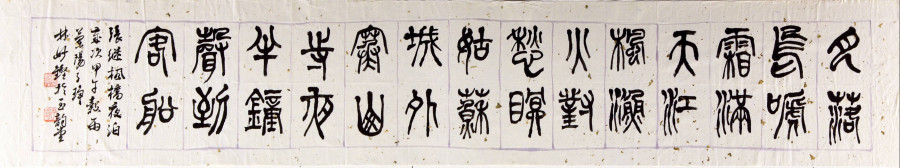 月落
烏嗁
霜滿
天江
楓漁
火對
愁眠
姑蘇
城外
寒山
寺夜
半鐘
聲到
客船
張繼楓橋夜泊
歲次甲午穀雨